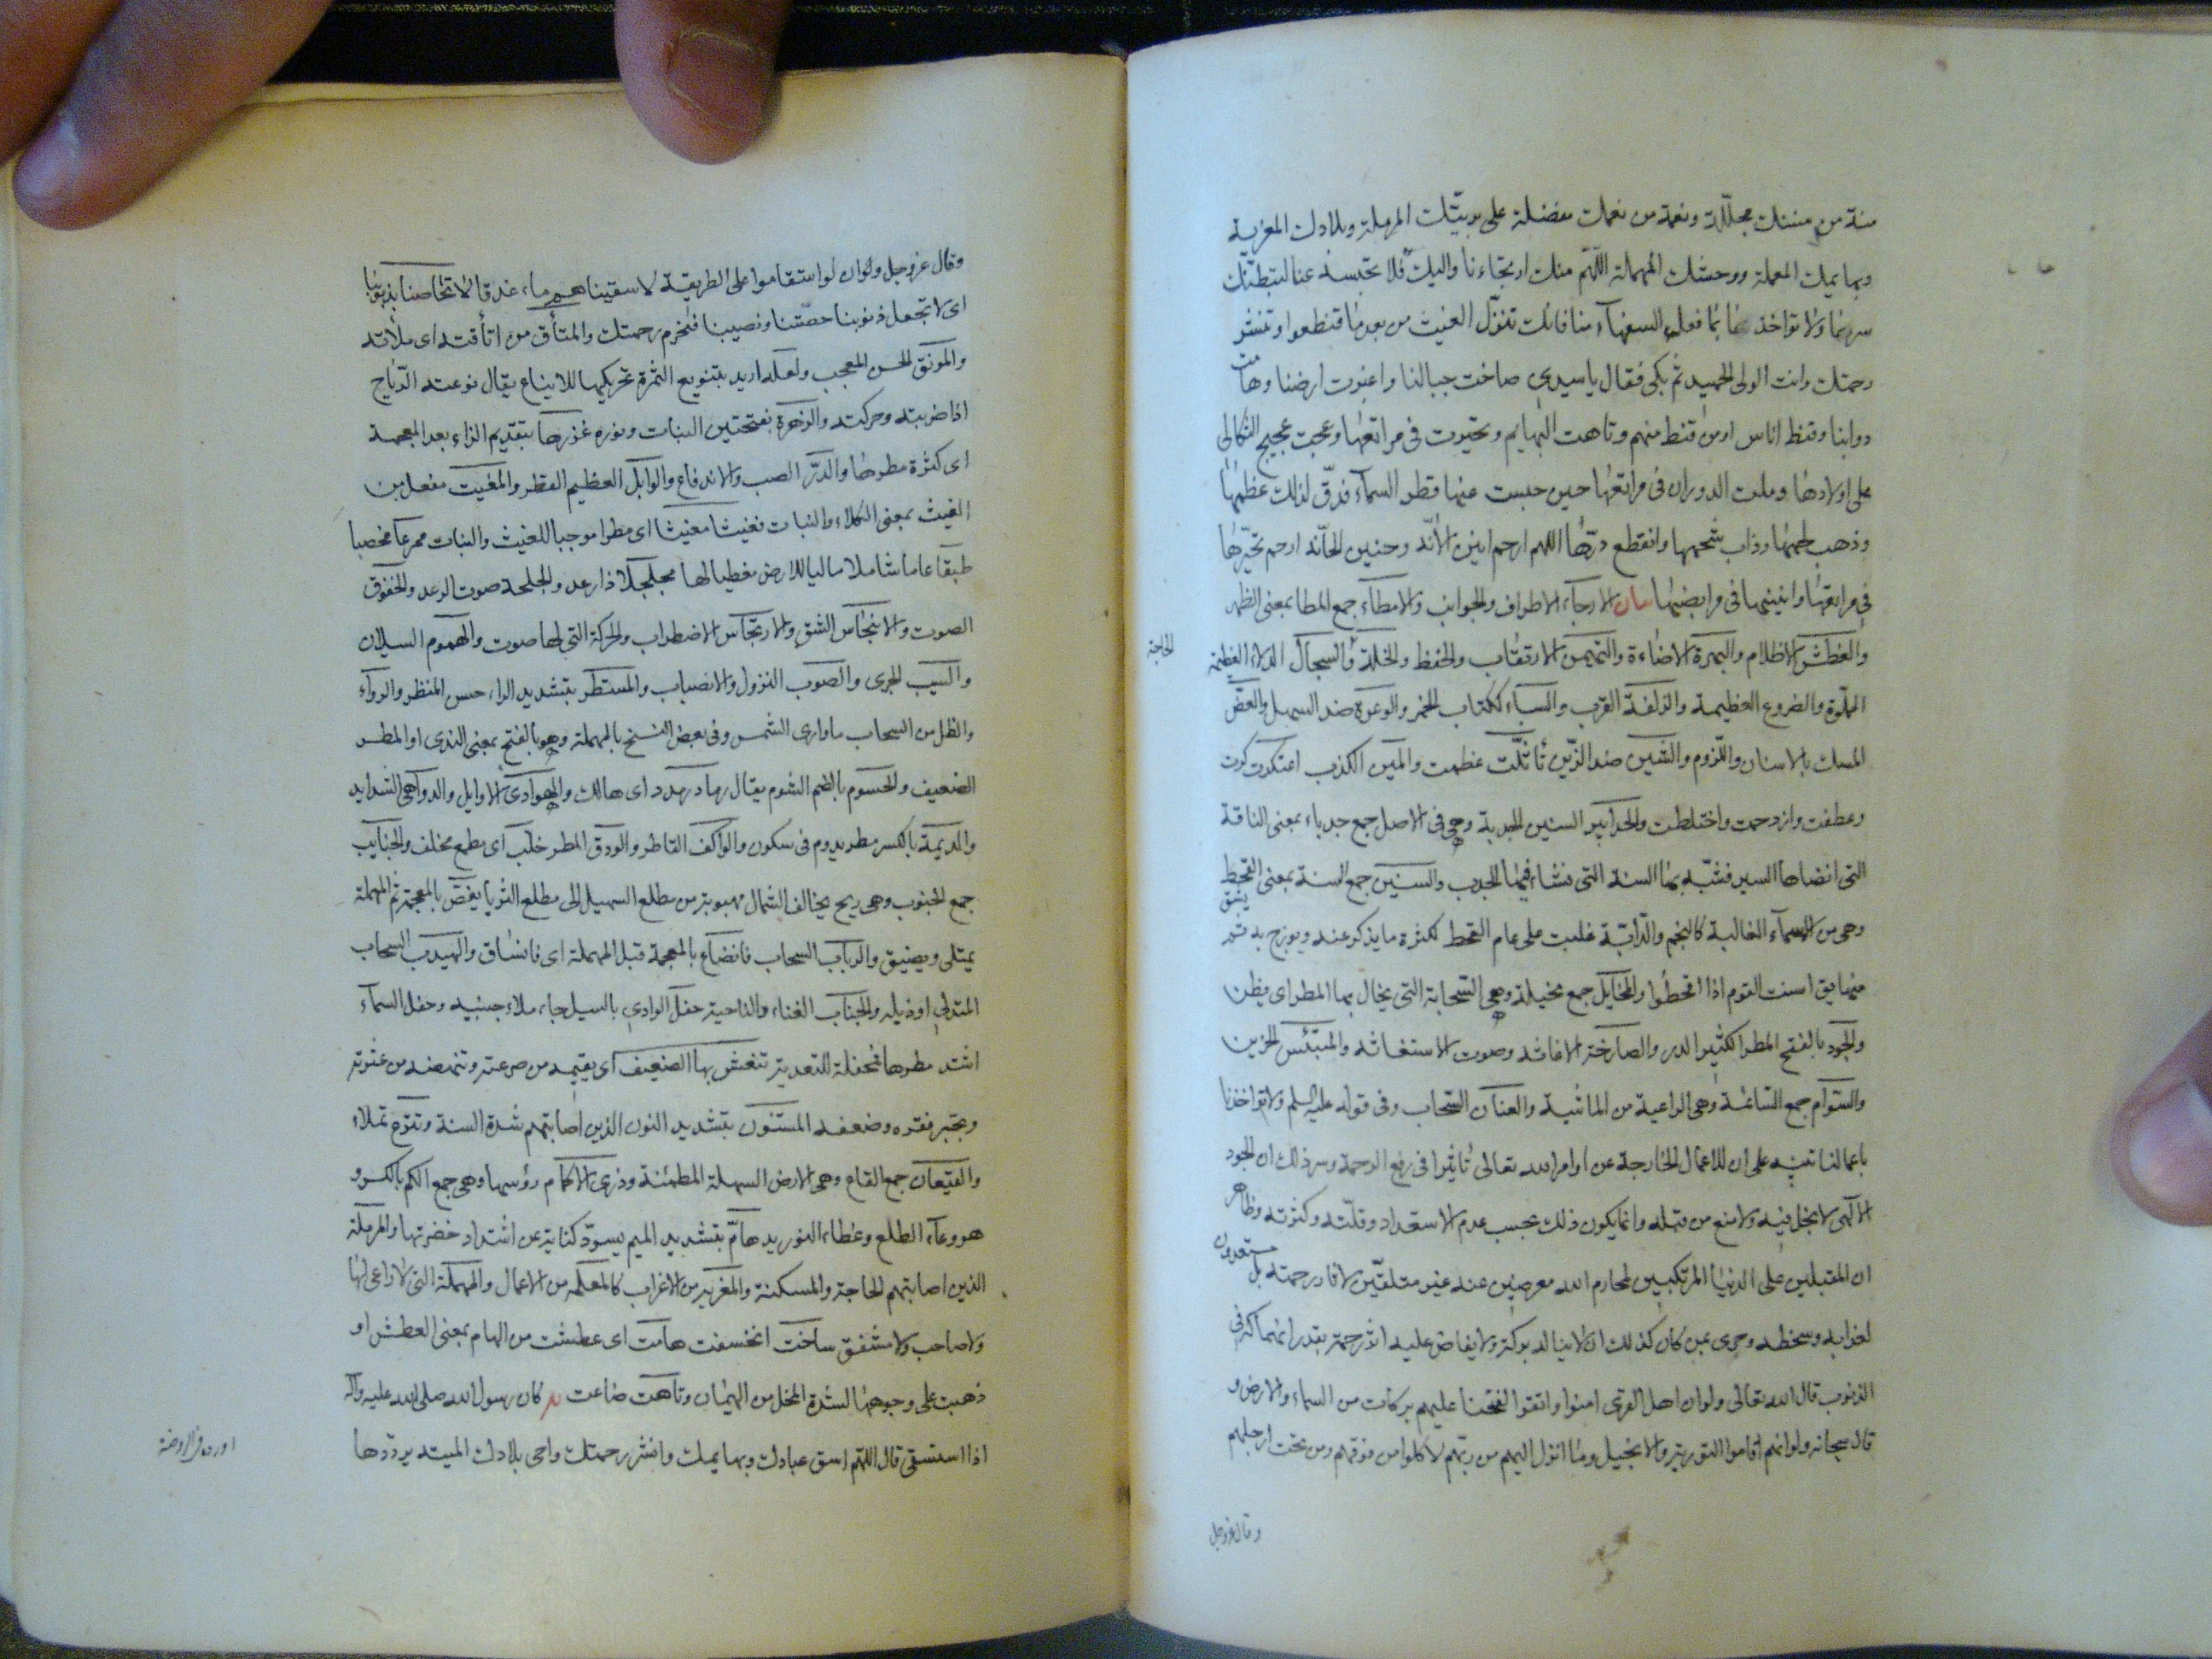 منة من مننك مجللة ونعمة من نعمك مفضلة على بريتك المرملة وبلادك المغربة
وبهايمك المعملة ووحشك المهملة اللهم منك ارتجاءنا واليك فلا تحبسه عنا لتبطنك
سرنا ولا تواخذنا بما فعل السفهاء منا فانك تنزل الغيث من بعد ما قنطوا وتنشر
رحمتك وانت الولى الحميد ثم بكى فقال يا سيدى صاخت جبالنا واغبرت ارضنا وهامت
دوابنا وقنط اناس او من قنط منهم وتاهت البهايم وتحيرت فى مراتعها وعجت عجيج الثكالى
على اولادها وملت الدوران فى مراتعها حين حبست عنها قطر السماء فدق لذلك عظمها
وذهب لحمها وذاب شحمها وانقطع درها اللهم ارحم انين الانة وحنين الحانة ارحم تحيرها
فى مراتعها وانينها فى مرابضها بيان الارجاء الاطراف والجوانب والامطاء جمع المطا بمعنى الظهر
والغطش الاظلام والبهرة الاضاءة والتهيمن الارتقاب والحفظ والخلة الحاجة والسجال الدلاء العظيمة
المملوة والضروع العظيمة والزلفة القرب والسباء ككتاب الخمر والوعرة ضد السهل والعض
المسك بالاسنان واللزوم والشين ضد الزين تاثلت عظمت والمين الكذب اعتكرت كرت
وعطفت وازدحمت واختلطت والحدابير السنين المجدبة وهى فى الاصل جمع حدباء بمعنى الناقة
التى انضاها السير فشبه بها السنة التى نشاء فيها الجدب والسنين جمع السنة بمعنى القحط
وهى من الاسماء الغالبة كالنجم والدابة غلبت على عام القحط لكثرة ما يذكر عنه ويورخ به ثم يشتق
منها يق اسنت القوم اذا اقحطوا والمخايل جمع مخيلة وهى السحابة التى يخال بها المطر اى يظن
والجود بالفتح المطر الكثير الدر والصارخة الاغاثة وصوت الاستغاثة والمبتئس الحزين
والسوام جمع السائمة وهى الراعية من الماشية والعنان السحاب وفى قوله عليه السلم ولا تواخذنا
باعمالنا تنبيه على ان للاعمال الخارجة عن اوامر الله تعالى تاثيرا فى رفع الرحمة وسر ذلك ان الجود
الالهى لا بخل فيه ولا منع من قبله وانما يكون ذلك بحسب عدم الاستعداد وقلته وكثرته وظاهر
ان المقبلين على الدنيا المرتكبين لمحارم الله معرضين عنه غير متلقين لاثار رحمته بل مستعدون
لعذابه وسخطه وحرى بمن كان كذلك ان لا يناله بركة ولا يفاض عليه اثر رحمة بقدر انهماكه فى
الذنوب قال الله تعالى ولو ان اهل القرى امنوا واتقوا لفتحنا عليهم بركات من السماء والارض و
قال سبحانه ولو انهم اقاموا التورية والانجيل وما انزل اليهم من ربهم لاكلوا من فوقهم ومن تحت ارجلهم
وقال عزوجل
وقال عز وجل وان لو استقاموا على الطريقة لاسقيناهم ماء غدقا لا تخاصنا بذنوبنا
اى لا تجعل ذنوبنا حصتنا ونصيبنا فنحرم رحمتك والمتأق من اتأقته اى ملأته
والمونق الحسن المعجب ولعله اريد بتنويع الثمرة تحريكها للايناع يقال نوعته الرياح
اذا ضربته وحركته والزهرة بفتحتين النبات ونوره غزرها بتقديم الزاء بعد المعجمة
اى كثرة مطرها والدر الصب والاندفاع والوابل العظيم القطر والمغيث مفعل من
الغيث بمعنى الكلاء والنبات فغيثا مغيثا اى مطرا موجبا للغيث والنبات ممرعا مخصبا
طبقا عاما شاملا ماليا للارض مغطيا لها مجلجلا ذا رعد والجلجة صوت الرعد والخفوق
الصوت والانبجاس الشق والارتجاس الاضطراب والحركة التى لها صوت والهموم السيلان
والسيب الجرى والصوب النزول والانصباب والمستطر بتشديد الراء حسن المنظر والرواء
والظل من السحاب ما وارى الشمس وفى بعض النسخ بالمهملة وهو بالفتح بمعنى الندى او المطر
الضعيف والحسوم بالضم الشوم يقال رماد رمدد اى هالك والهوادى الاوايل والدواهى الشدايد
والديمة بالكسر مطر يدوم فى سكون والواكف القاطر والودق المطر خلب اى مطمع مخلف والجنايب
جمع الجنوب وهى ريح يخالف الشمال مهبوبة من مطلع السهيل الى مطلع الثريا يغص بالمعجمة ثم المهملة
يمتلى ويضيق والرباب السحاب فانضاع بالمعجمة قبل المهملة اى فانساق والهيدب السحاب
المتدلى او ذيله والجناب الفناء والناحية حفل الوادى بالسيل جاء ملاء جنبيه وحفل السماء
اشتد مطرها فمحفلة للتعدية تنعش بها الضعيف اى يقيمه من صرعته وتنهضه من عثرته
ويجبر فقره وضعفه المسنون بتشديد النون الذين اصابتهم شدة السنة وتترع تملاء
والقيعان جمع القاع وهى الارض السهلة المطمئنة وذرى الاكمام رؤسها وهى جمع الكم بالكسر و
هو وعاء الطلع وغطاء النور يدهام بتشديد الميم يسود كناية عن اشتداد خضرتها والمرملة
الذين اصابتهم الحاجة والمسكنة والمغربة من الاغراب كالمعملة من الاعمال والمهملة التى لا راعى لها
ولا صاحب ولا مشفق ساخت انخسفت هامت اى عطشت من الهام بمعنى العطش او
ذهبت على وجوهها لشدة المحل من الهيمان وتاهت ضاعت يه كان رسول الله صلى الله عليه واله
اذا استسقى قال اللهم اسق عبادك وبهايمك وانشر رحمتك واحى بلادك الميتة يرددها